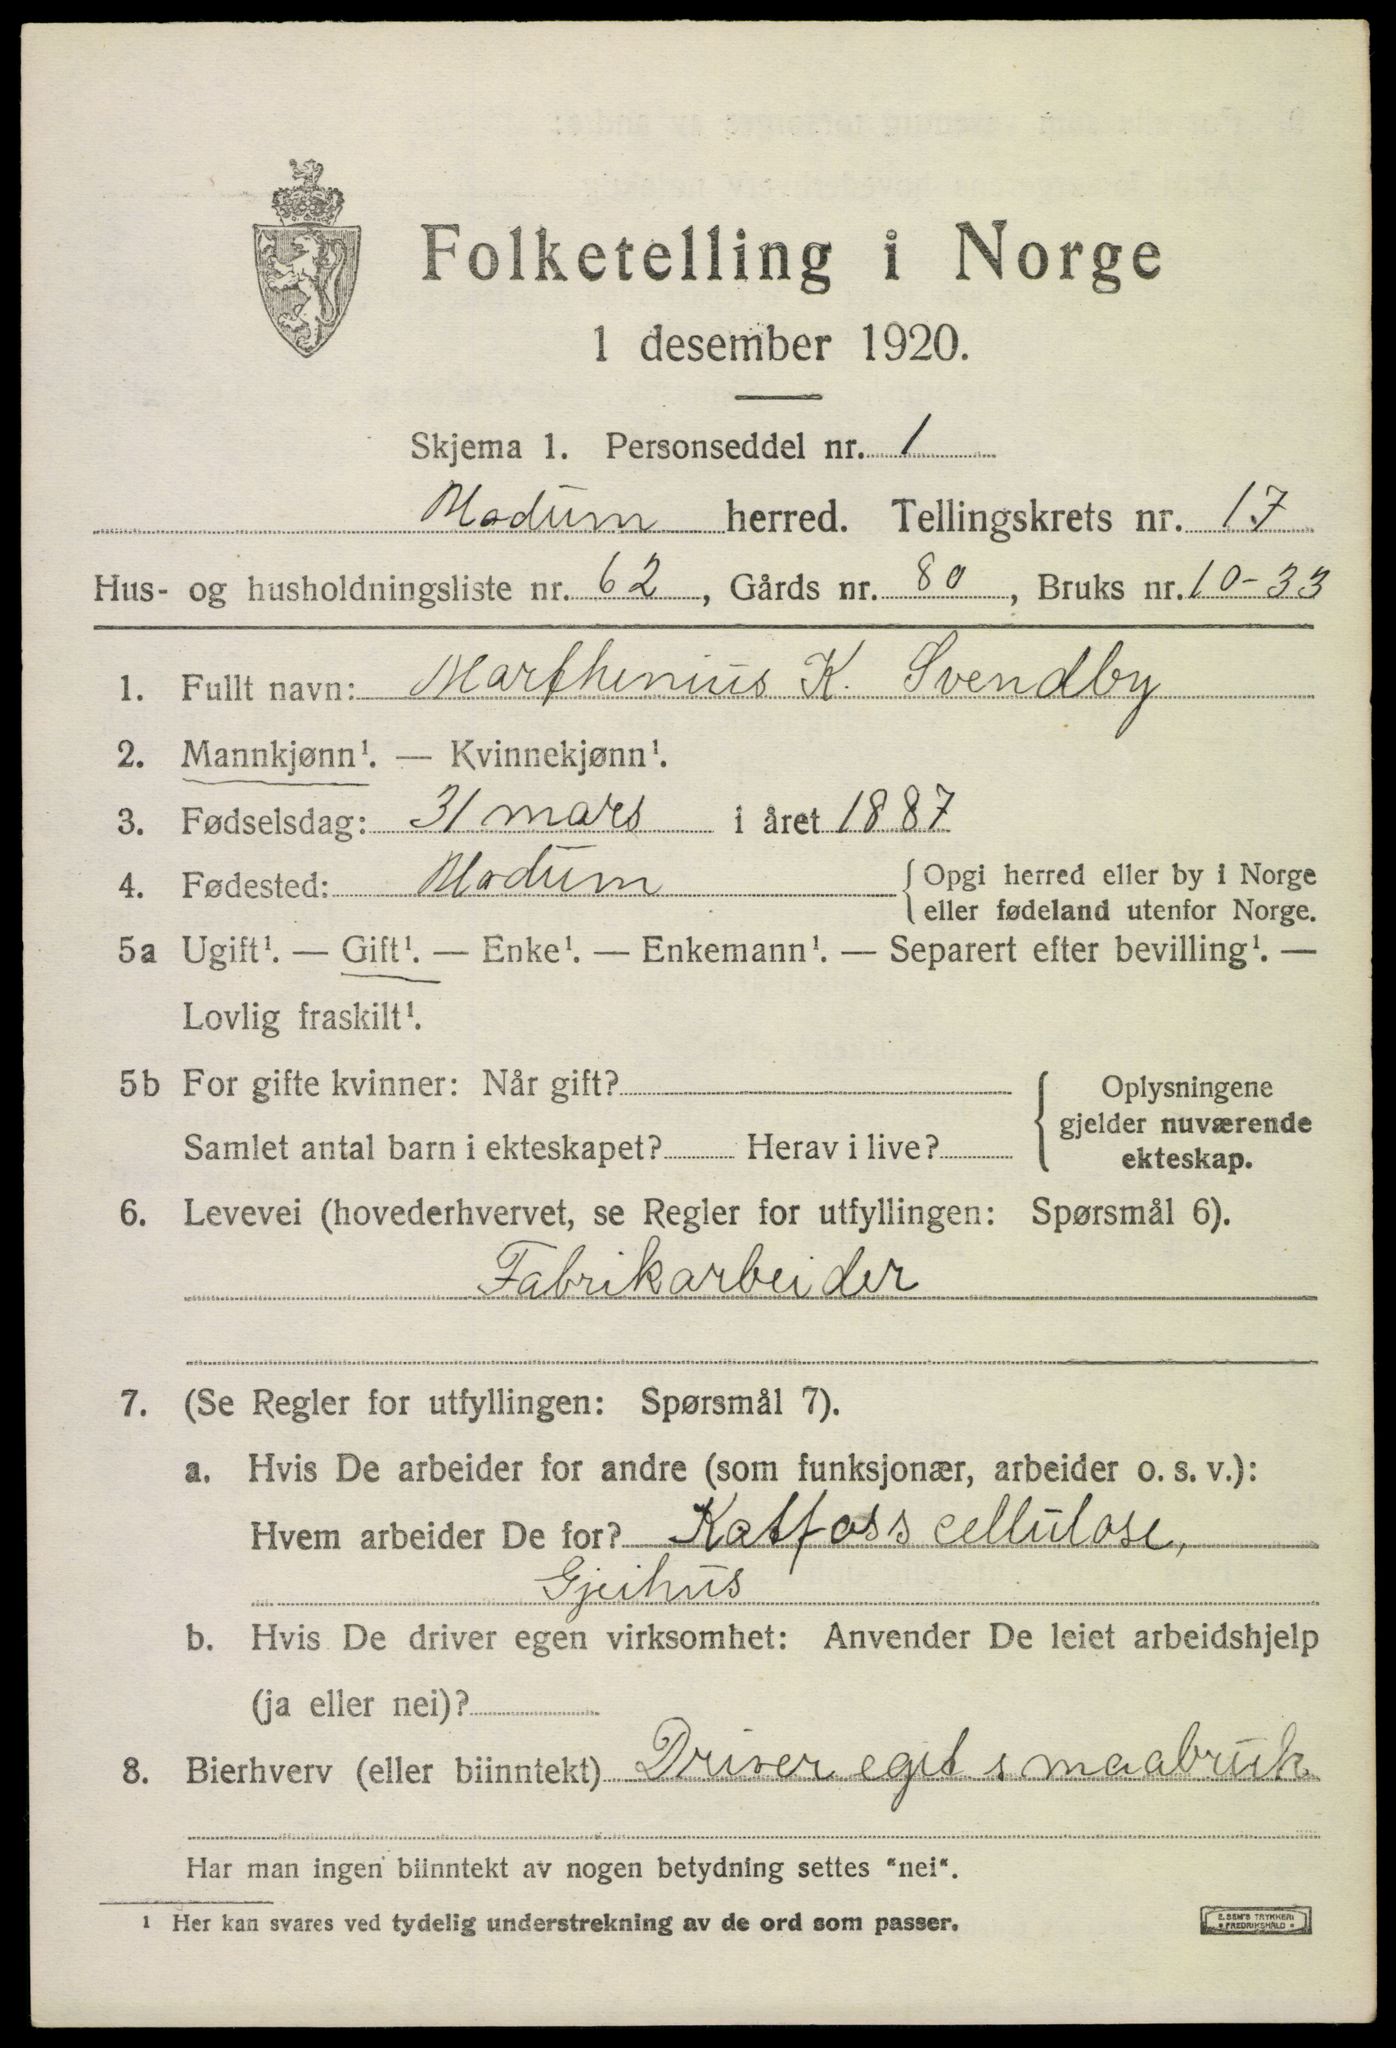 Folketelling i Norge
1 desember 1920.
Skjema 1. Personseddel nr. 1
Modum herred. Tellingskrets nr. 17
Hus- og husholdningsliste nr. 62, Gårds nr. 80, Bruks nr. 10-33
1. Fullt navn: Marthinius K. Svendby
2. Mannkjønn¹. — Kvinnekjønn¹.
3. Fødselsdag: 31 mars i året 1887
4. Fødested: Modum { Opgi herred eller by i Norge
eller fødeland utenfor Norge.
5a Ugift¹. — Gift¹. — Enke¹. — Enkemann¹. — Separert efter bevilling¹. —
Lovlig fraskilt¹.
5b For gifte kvinner: Når gift? { Oplysningene
gjelder nuværende
Samlet antal barn i ekteskapet? Herav i live? ekteskap.
6. Levevei (hovederhvervet, se Regler for utfyllingen: Spørsmål 6).
Fabrikarbeider
7. (Se Regler for utfyllingen: Spørsmål 7).
a. Hvis De arbeider for andre (som funksjonær, arbeider o. s. v.):
Hvem arbeider De for? Katfoss cellulose,
Gjeihus
b. Hvis De driver egen virksomhet: Anvender De leiet arbeidshjelp
(ja eller nei)?
8. Bierhverv (eller biinntekt) Driver eget smaabruk
Har man ingen biinntekt av nogen betydning settes "nei".
¹ Her kan svares ved tydelig understrekning av de ord som passer.
E. SEM'S TRYKKERI
FREDRIKSHALD